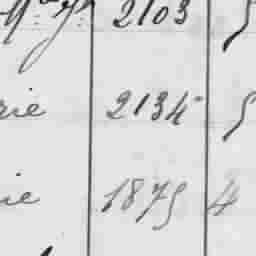 2103 5
rie 2134 5
ie 1875 4